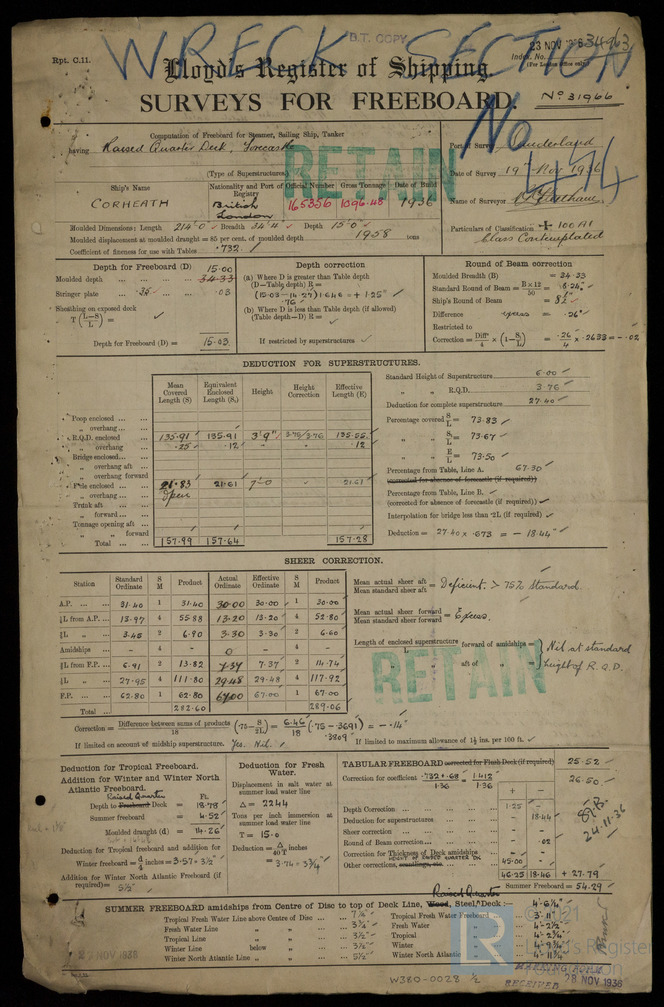 WRECK SECTION
B.T. COPY
23 NOV 1936
34963
Rpt. C.11.
Index. No.
(For London Office only)
Lloyd's Register of Shipping.
SURVEYS FOR FREEBOARD.
No 31966
No 474
Computation of Freeboard for Steamer, Sailing Ship, Tanker
having Raised Quarter Deck, Forecastle
(Type of Superstructures)
RETAIN
Port of Survey Sunderland
Date of Survey 19th Nov 1936
Name of Surveyor
Particulars of Classification + 100 A1
Class Contemplated
Ship's Name
Nationality and Port of Registry
Official Number
Gross Tonnage
Date of Build
CORHEATH
British London
165356
1096.48
1936
Moulded Dimensions: Length 214'0 Breadth 34'4" Depth 15'0"
Moulded displacement at moulded draught = 85 per cent. of moulded depth 1958 tons
Coefficient of fineness for use with Tables .732
Depth for Freeboard (D)
Moulded depth ... 15.00
34.33
Stringer plate ... .35 ... .03
Sheathing on exposed deck
T (L-S/L) =
Depth for Freeboard (D) = 15.03
Depth correction
(a) Where D is greater than Table depth
(D—Table depth) R =
(15.03 - 14.27) 1.646 = + 1.25"
.76
(b) Where D is less than Table depth (if allowed)
(Table depth—D) R =
If restricted by superstructures
Round of Beam correction
Moulded Breadth (B) = 34.33
Standard Round of Beam = B×12/50 = 8.24"
Ship's Round of Beam = 8½"
Difference excess .26"
Restricted to
Correction = Diff'/4 × (1 - S/L) = .26/4 × .2633 = -.02
DEDUCTION FOR SUPERSTRUCTURES.
Mean Covered Length (S)
Equivalent Enclosed Length (S1)
Height
Height Correction
Effective Length (E)
Poop enclosed ...
„ overhang ...
R.Q.D. enclosed 135.91 135.91 3'9" 3.75/3.76 135.55
„ overhang .25 .12 .12
Bridge enclosed...
„ overhang aft
„ overhang forward
F'cle enclosed 21.83 21.61 7'-0 21.61
„ overhang ... Open
Trunk aft ...
„ forward...
Tonnage opening aft ...
„ „ forward
Total ... 157.99 157.64 157.28
Standard Height of Superstructure 6.00
„ „ R.Q.D. 3.76
Deduction for complete superstructure 27.40
Percentage covered S/L = 73.83
„ „ S1/L = 73.67
„ „ E/L = 73.50
Percentage from Table, Line A. 67.30
(corrected for absence of forecastle (if required))
Percentage from Table, Line B.
(corrected for absence of forecastle (if required))
Interpolation for bridge less than .2L (if required)
Deduction = 27.40 x .673 = - 18.44"
SHEER CORRECTION.
Station
Standard Ordinate
S M
Product
Actual Ordinate
Effective Ordinate
S M
Product
A.P. ... 31.40 1 31.40 30.00 30.00 1 30.00
⅙L from A.P. ... 13.97 4 55.88 13.20 13.20 4 52.80
⅓L „ 3.45 2 6.90 3.30 3.30 2 6.60
Amidships ... - 4 - 0 - 4 -
⅓L from F.P. ... 6.91 2 13.82 7.37 7.37 2 14.74
⅙L „ 27.95 4 111.80 29.48 29.48 4 117.92
F.P. ... 62.80 1 62.80 67.00 67.00 1 67.00
Total ... 282.60 289.06
Mean actual sheer aft / Mean standard sheer aft = Deficient. > 75% Standard.
Mean actual sheer forward / Mean standard sheer forward = Excess.
Length of enclosed superstructure forward of amidships / L =
„ „ aft of „ =
Nil at standard height of R.Q.D.
RETAIN
Correction = Difference between sums of products/18 (.75 - S/2L) = 6.46/18 (.75 - .3691) = - .14"
.3809
If limited on account of midship superstructure. Yes. Nil.
If limited to maximum allowance of 1½ ins. per 100 ft.
Deduction for Tropical Freeboard.
Addition for Winter and Winter North Atlantic Freeboard.
Raised Quarter Ft.
Depth to Freeboard Deck = 18.78
Summer freeboard = 4.52
Moulded draught (d) = 14.26
Deduction for Tropical freeboard and addition for
Winter freeboard = d/4 inches = 3.57 = 3½"
Addition for Winter North Atlantic Freeboard (if required) = 5½"
Deduction for Fresh Water.
Displacement in salt water at summer load water line
Δ = 2244
Tons per inch immersion at summer load water line
T = 15.0
Deduction = Δ/40T inches
= 3.74 = 3¾"
TABULAR FREEBOARD corrected for Flush Deck (if required) 25.52
Correction for coefficient .732+.68/1.36 = 1.412/1.36 26.50
+ -
Depth Correction ... 1.25 -
Deduction for superstructures ... - 18.44
Sheer correction ... - -
Round of Beam correction... - .02
Correction for Thickness of Deck amidships - -
Other corrections, HEIGHT OF RAISED QUARTER DK 45.00 -
46.25 18.46 + 27.79
Summer Freeboard = 54.29
24-11-36
Raised Quarter
SUMMER FREEBOARD amidships from Centre of Disc to top of Deck Line, Wood, Steel, Deck :— 4'-6¼"
Tropical Fresh Water Line above Centre of Disc ... 7¼"
Fresh Water Line „ „ ... 3¾"
Tropical Line „ „ ... 3½"
Winter Line below „ ... 3½"
Winter North Atlantic Line „ „ ... 5½"
Tropical Fresh Water Freeboard 3'-11"
Fresh Water „ 4'-2½"
Tropical „ 4'-2¾"
Winter „ 4'-9¾"
Winter North Atlantic „ 4'-11¾"
27 NOV 1936
© 2021
LR
Lloyd's Register
Foundation
W380-0028 ½
RECEIVED 28 NOV 1936